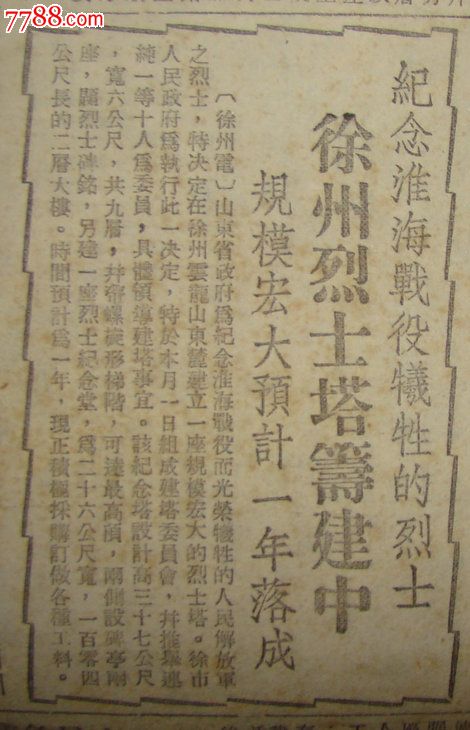 7788.com
紀念淮海戰役犧牲的烈士
徐州烈士塔籌建中
規模宏大預計一年落成
〔徐州電〕山東省政府爲紀念淮海戰役而光榮犧牲的人民解放軍
之烈士，特決定在徐州雲龍山東麓建立一座規模宏大的烈士塔。徐市
人民政府爲執行此一決定，特於本月一日組成建塔委員會，并推舉連
純一等十人爲委員，具體領導建塔事宜。該紀念塔設計高三十七公尺
，寬六公尺，共九層，并帶螺旋形梯階，可達最高頂，兩側設碑亭兩
座，鐫烈士碑銘，另建一座烈士紀念堂，爲二十六公尺寬，一百零四
公尺長的二層大樓。時間預計爲一年，現正積極採購訂做各種工料。